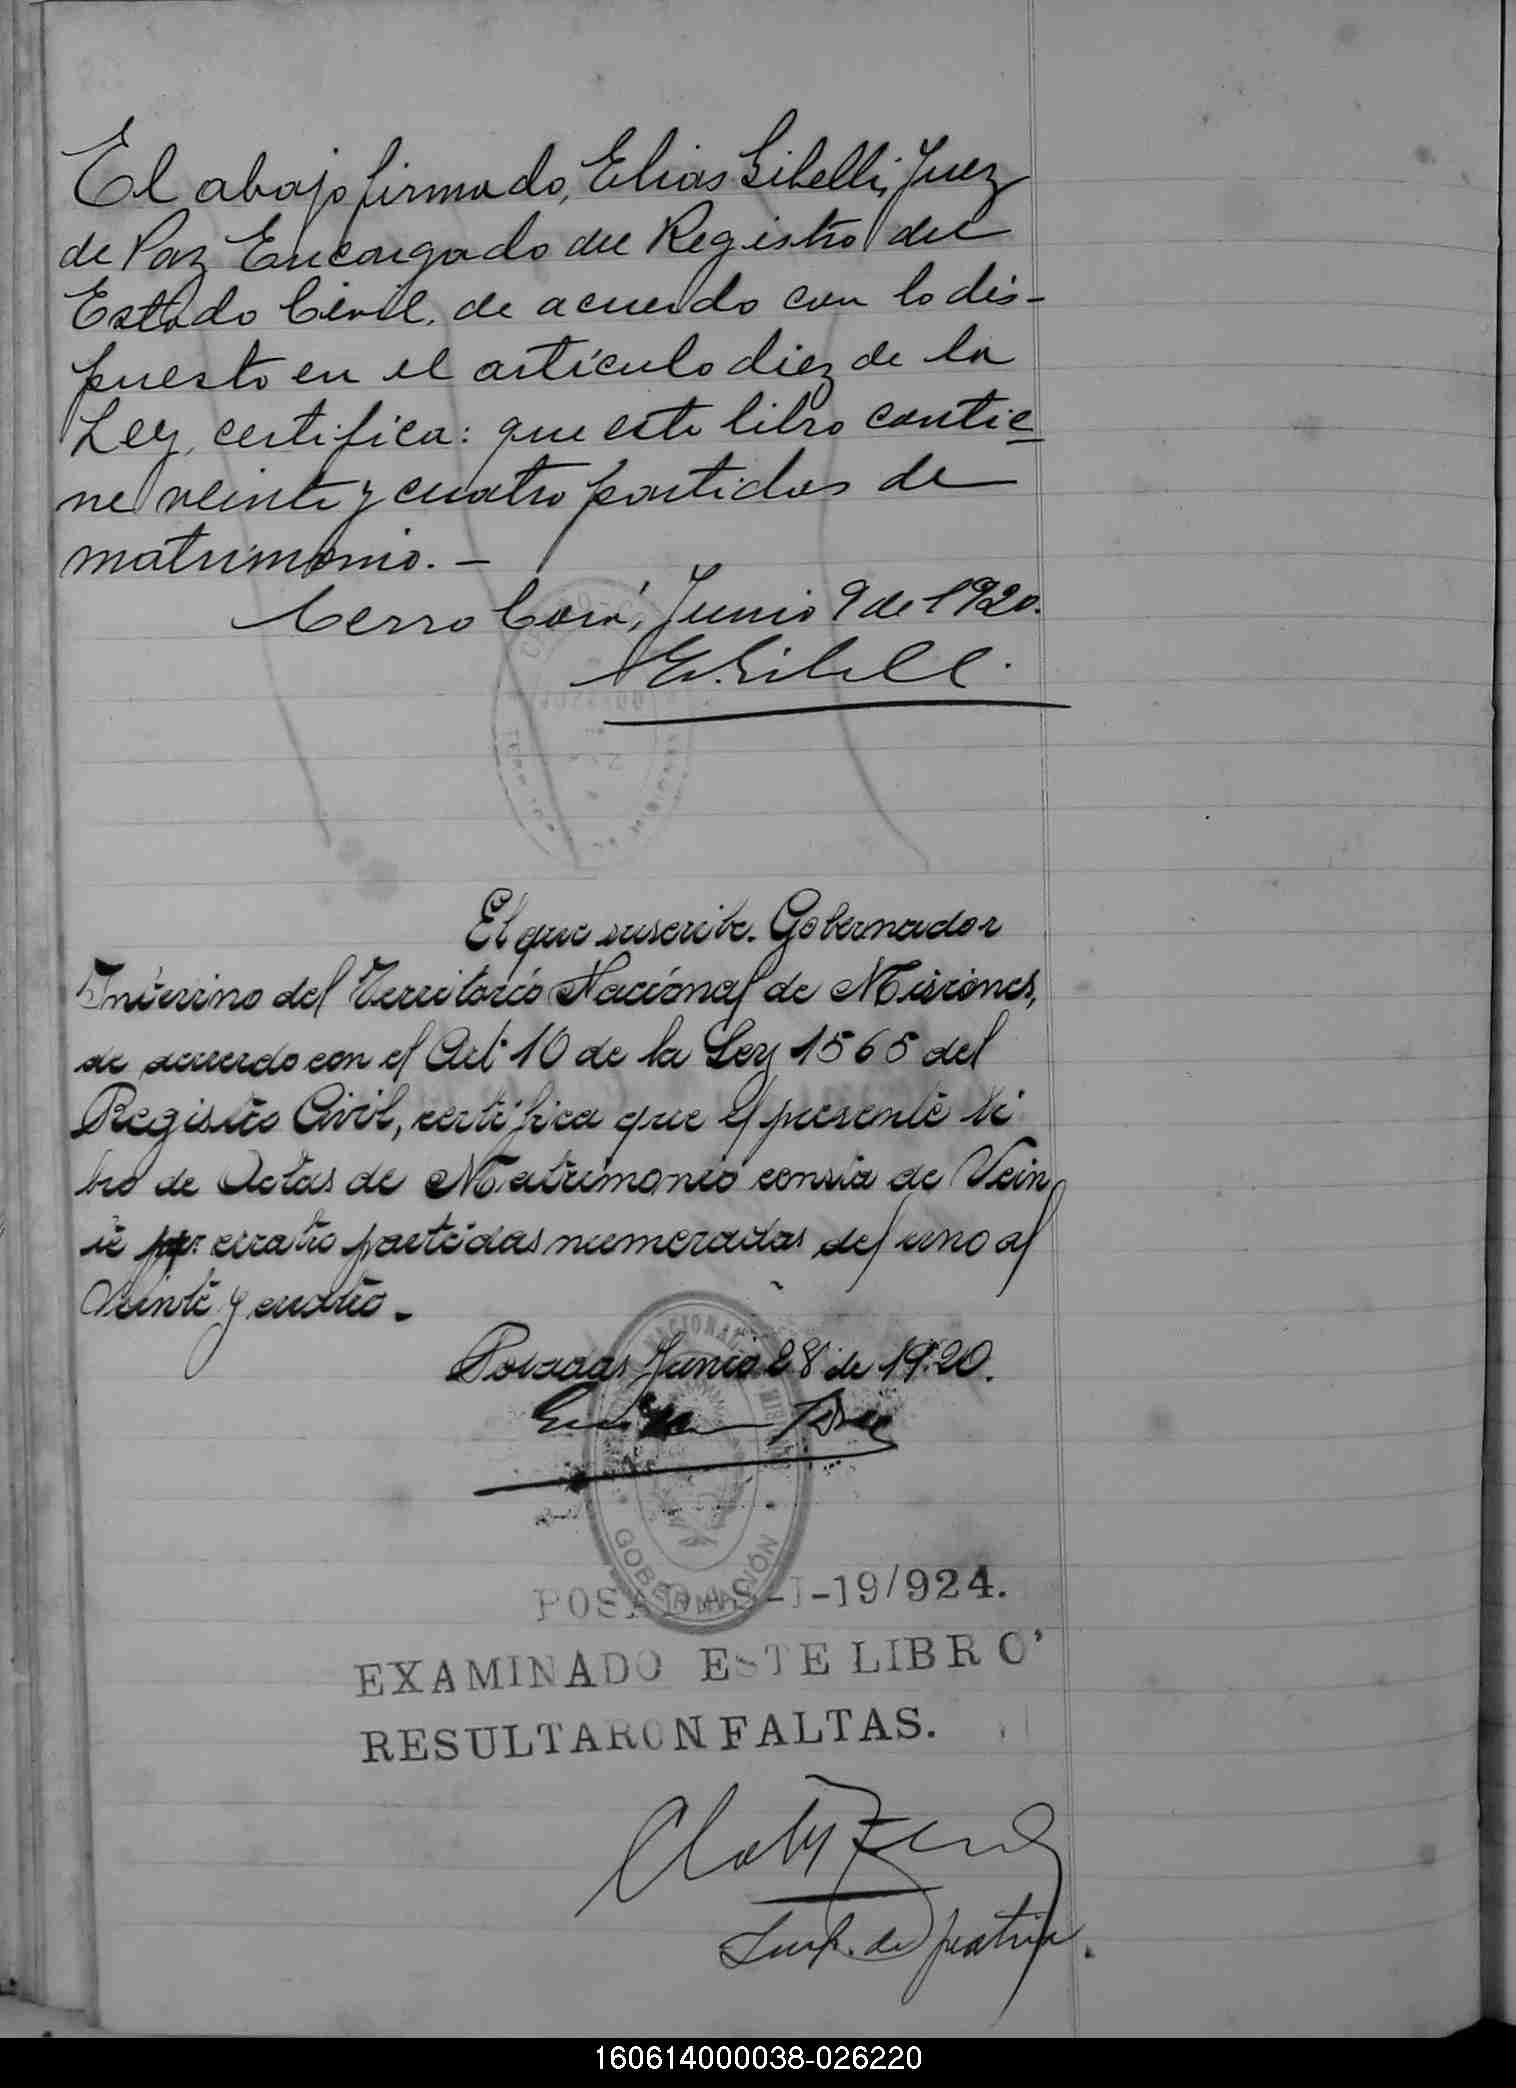 El abajo firmado, Elias Gibelli, Juez
de Paz Encargado del Registro del
Estado Civil, de acuerdo con lo dis-
puesto en el artículo diez de la
Ley, certifica: que este libro contie-
ne veinte y cuatro partidas de
matrimonio. -
Cerro Corá, Junio 9 de 1920.
E. Gibelli.
El que suscribe. Gobernador
Interino del Territorio Nacional de Misiones,
de acuerdo con el Art. 10 de la Ley 1565 del
Registro Civil, certifica que el presente li
bro de Actas de Matrimonio consta de Vein
te y cuatro partidas numeradas del uno al
Veinte y cuatro. -
Posadas Junio 28 de 1920.
NACIONAL
GOBERNACIÓN
POSADAS-I-19/924.
EXAMINADO ESTE LIBRO
RESULTARON FALTAS.
160614000038-026220